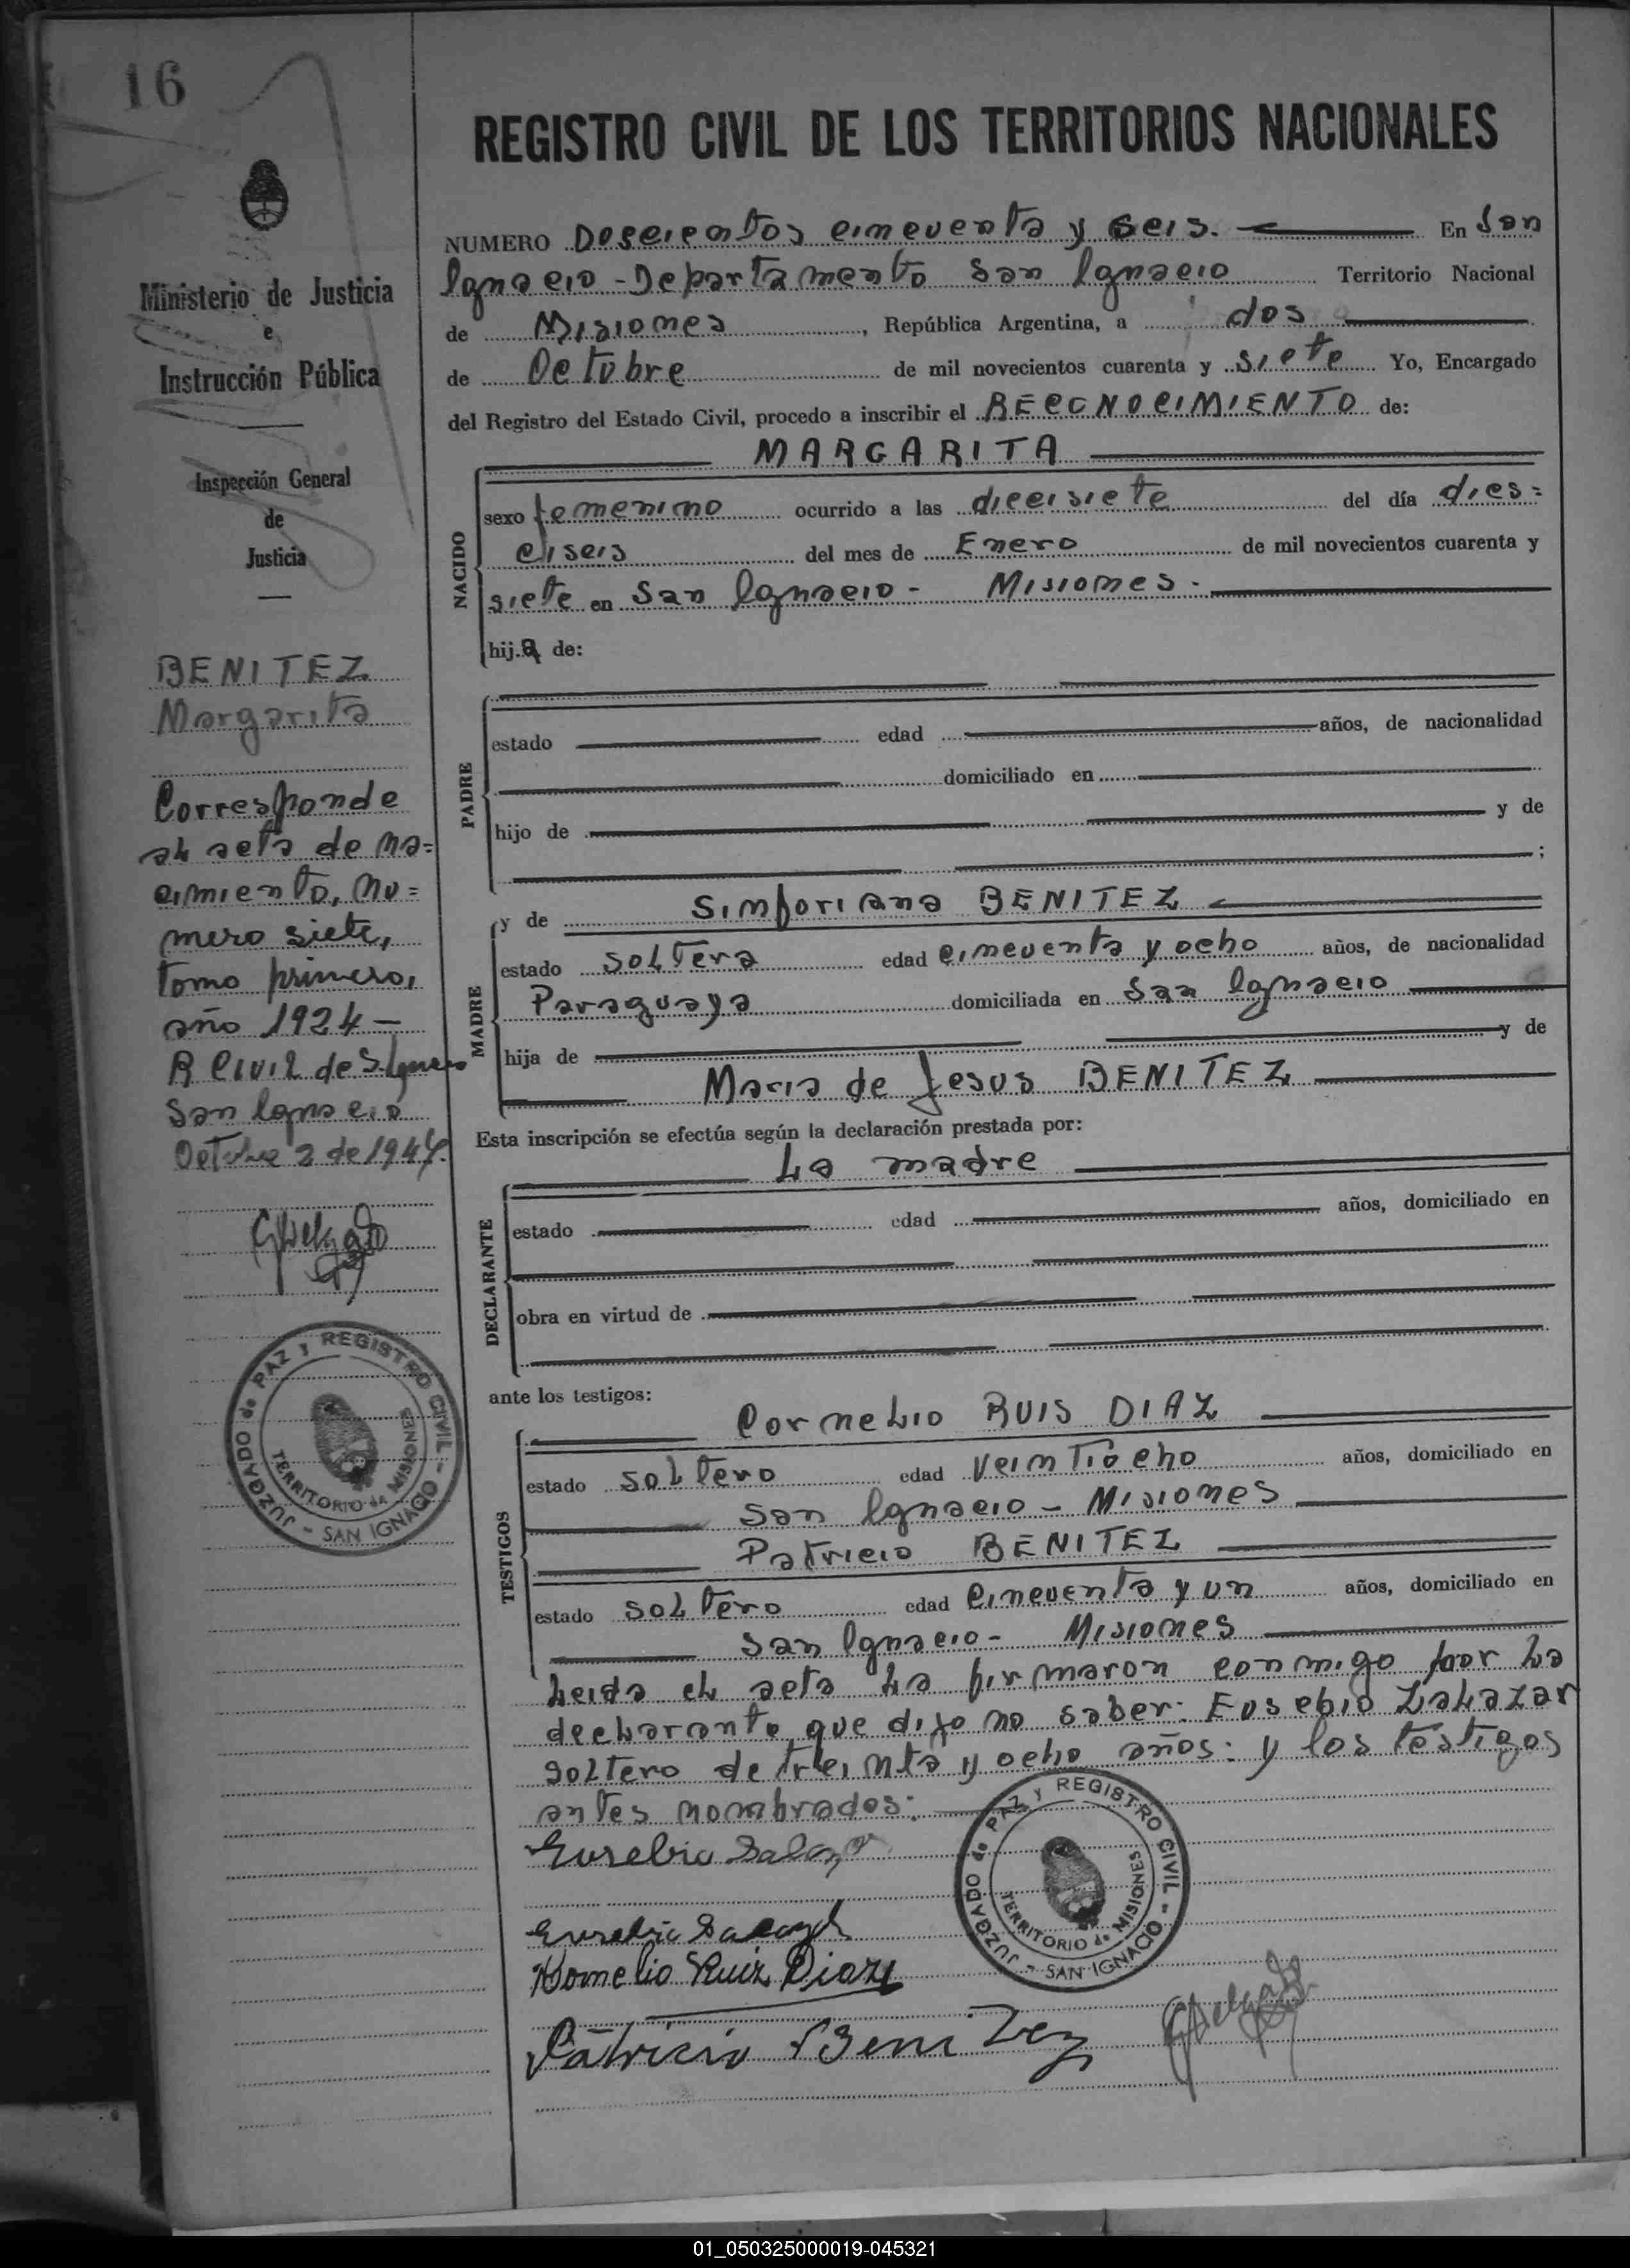 16
Ministerio de Justicia
e
Instrucción Pública
Inspección General
de
Justicia
BENITEZ
Margarita
Corresponde
al acta de na=
cimiento, nu=
mero siete,
tomo primero,
año 1924 —
R Civil de S. Ignacio
San Ignacio
Octubre 2 de 1947.
JUZGADO de PAZ y REGISTRO CIVIL - SAN IGNACIO -
TERRITORIO de MISIONES
REGISTRO CIVIL DE LOS TERRITORIOS NACIONALES
NUMERO Doscientos cincuenta y seis. En San
Ignacio - Departamento San Ignacio Territorio Nacional
de Misiones, República Argentina, a dos
de Octubre de mil novecientos cuarenta y siete Yo, Encargado
del Registro del Estado Civil, procedo a inscribir el RECONOCIMIENTO de:
MARGARITA
NACIDO
sexo femenino ocurrido a las diecisiete del día dies=
ciseis del mes de Enero de mil novecientos cuarenta y
siete en San Ignacio - Misiones.
hija de:
PADRE
estado edad años, de nacionalidad
domiciliado en
hijo de y de
;
MADRE
y de Simforiana BENITEZ
estado soltera edad cincuenta y ocho años, de nacionalidad
Paraguaya domiciliada en San Ignacio
hija de y de
Maria de Jesus BENITEZ
Esta inscripción se efectúa según la declaración prestada por:
La madre
DECLARANTE
estado edad años, domiciliado en
obra en virtud de
ante los testigos:
TESTIGOS
Cornelio RUIS DIAZ
estado soltero edad veintiocho años, domiciliado en
San Ignacio - Misiones
Patricio BENITEZ
estado soltero edad cincuenta y un años, domiciliado en
San Ignacio - Misiones
Leida el acta la firmaron conmigo por la
declarante que dijo no saber: Eusebio ZALAZAR
soltero de treinta y ocho años: y los testigos
antes nombrados:
Eusebio Salazar
Eusebio Salazar
Kornelio Ruiz Diaz
Patricio Benitez
JUZGADO de PAZ y REGISTRO CIVIL - SAN IGNACIO -
TERRITORIO de MISIONES
01_050325000019-045321